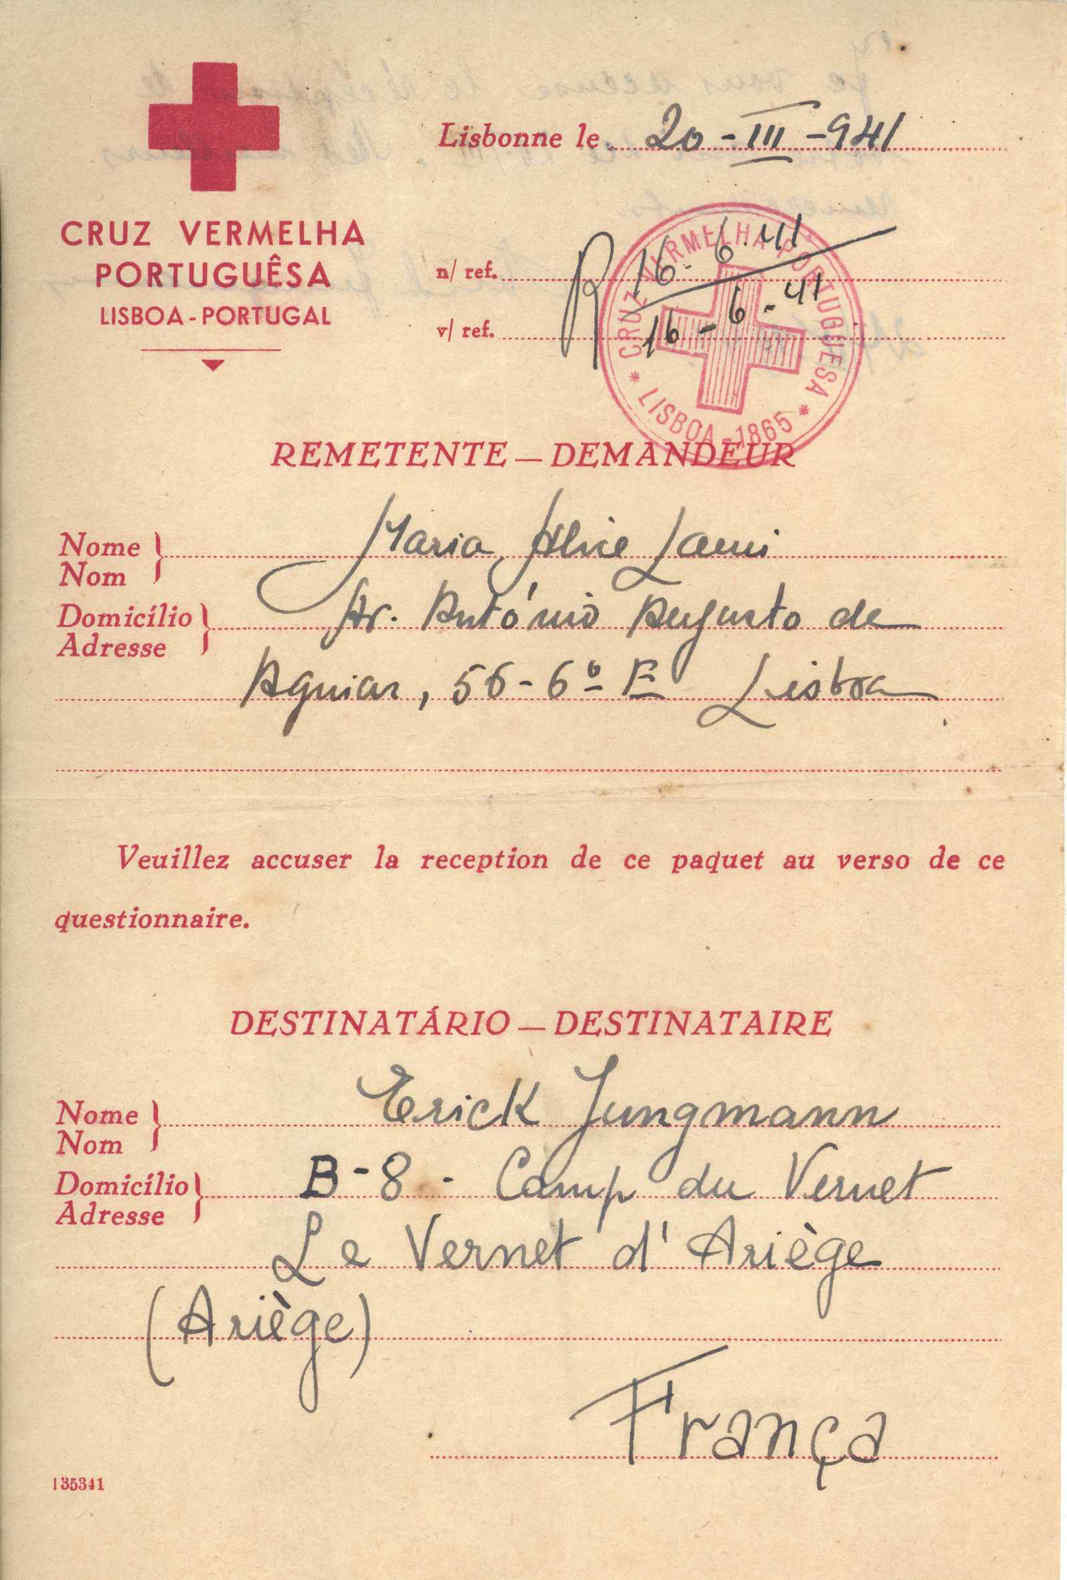 Lisbonne le 20-III-941
CRUZ VERMELHA
PORTUGUÊSA
LISBOA - PORTUGAL
n/ ref. 16-6-41
v/ ref. R 16-6-41
CRUZ VERMELHA PORTUGUESA * LISBOA - 1865 *
REMETENTE — DEMANDEUR
Nome } Maria Alice Lami
Nom
Domicílio } Av. António Augusto de
Adresse
Aguiar, 56-6º E Lisboa
Veuillez accuser la reception de ce paquet au verso de ce
questionnaire.
DESTINATÁRIO — DESTINATAIRE
Nome } Erick Jungmann
Nom
Domicílio } B-8 - Camp du Vernet
Adresse
Le Vernet d'Ariège
(Ariège)
França
135341